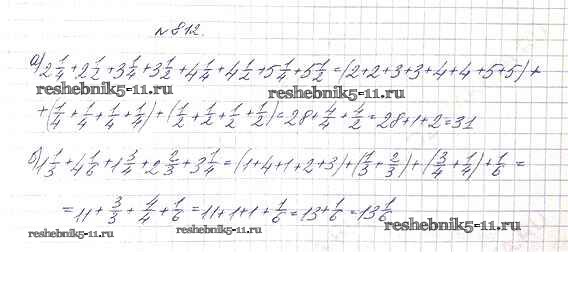 №812.
а) 2 1/4 + 2 1/2 + 3 1/4 + 3 1/2 + 4 1/4 + 4 1/2 + 5 1/4 + 5 1/2 = (2+2+3+3+4+4+5+5) +
reshebnik5-11.ru reshebnik5-11.ru
+ (1/4 + 1/4 + 1/4 + 1/4) + (1/2 + 1/2 + 1/2 + 1/2) = 28 + 4/4 + 4/2 = 28+1+2 = 31
б) 1 1/3 + 4 1/6 + 1 3/4 + 2 2/3 + 3 1/4 = (1+4+1+2+3) + (1/3 + 2/3) + (3/4 + 1/4) + 1/6 =
= 11 + 3/3 + 4/4 + 1/6 = 11+1+1+ 1/6 = 13 + 1/6 = 13 1/6
reshebnik5-11.ru reshebnik5-11.ru reshebnik5-11.ru